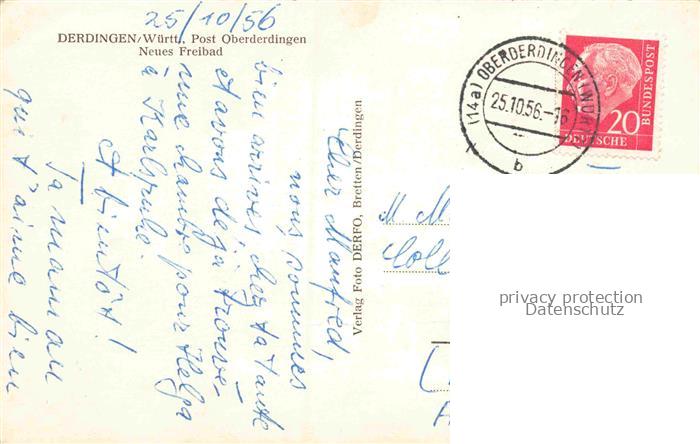 25/10/56
DERDINGEN/Württ., Post Oberderdingen
Neues Freibad
Cher Manfred,
nous sommes
bien arrivés chez ta tante
Avons déjà trouvé
une chambre pour Helga
à Karlsruhe.
A bientôt!
Ta maman
qui t'aime bien
Verlag Foto DERFO, Bretten/Derdingen
(14a) OBERDERDINGEN (WÜR
25.10.56.-16
b
20
DEUTSCHE
BUNDESPOST
M M
Coll
privacy protection
Datenschutz